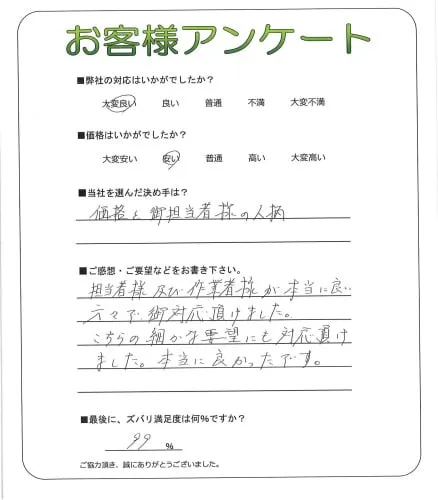 お客様アンケート
■弊社の対応はいかがでしたか?
大変良い 良い 普通 不満 大変不満
■価格はいかがでしたか?
大変安い 安い 普通 高い 大変高い
■当社を選んだ決め手は?
価格と御担当者様の人柄
■ご感想・ご要望などをお書き下さい。
担当者様及び作業者様が本当に良い
方々で御対応頂けました。
こちらの細かな要望にも対応頂け
ました。本当に良かったです。
■最後に、ズバリ満足度は何%ですか?
99 %
ご協力頂き、誠にありがとうございました。